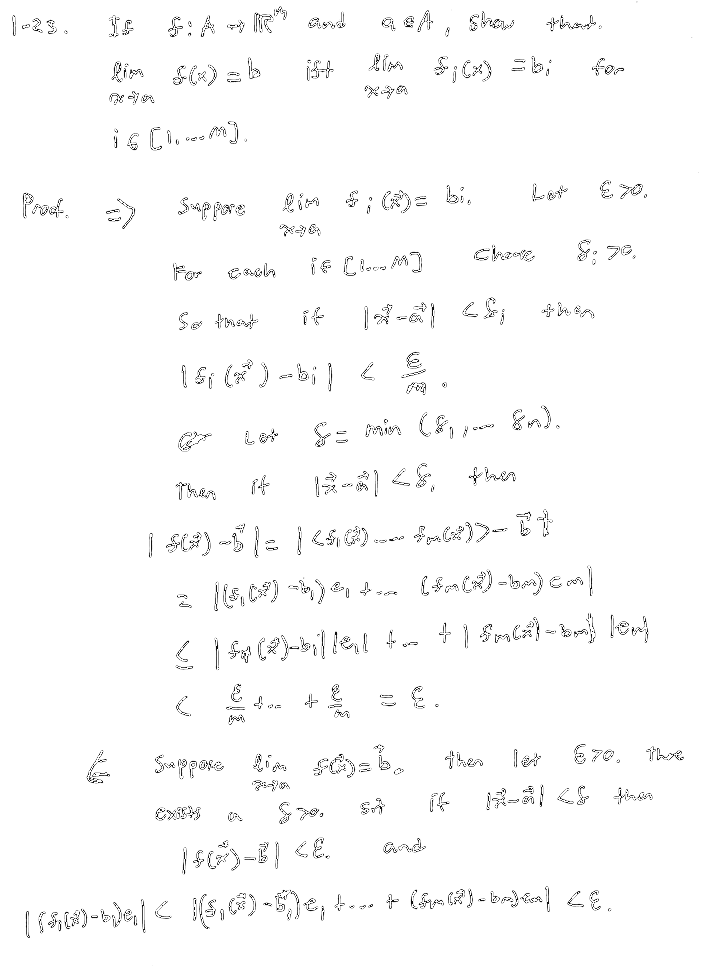 1-23. If f: A → ℝᵐ and a ∈ A, show that.
lim f(x) = b iff lim fᵢ(x) = bᵢ for
x→a x→a
i ∈ [1, ... m].
Proof. ⇒) Suppose lim fᵢ(x⃗) = bᵢ. Let ε > 0.
x→a
For each i ∈ [1...m] choose δᵢ > 0.
So that if |x⃗ - a⃗| < δᵢ then
|fᵢ(x⃗) - bᵢ| < ε/m.
Let δ = min (δ₁, ... δn).
Then if |x⃗ - a⃗| < δ, then
|f(x⃗) - b⃗| = |<f₁(x⃗) ... fₘ(x⃗)> - b⃗|
= |(f₁(x⃗) - b₁)e₁ + ... (fₘ(x⃗) - bm)em|
≤ |f₁(x⃗) - bᵢ||e₁| + ... + |fₘ(x⃗) - bm| |em|
< ε/m + ... + ε/m = ε.
⇐ Suppose lim f(x⃗) = b⃗. then let ε > 0. There
x→a
exists a δ > 0. s.t if |x⃗ - a⃗| < δ then
|f(x⃗) - b⃗| < ε. and
|(f₁(x⃗) - b₁)e₁| < |(f₁(x⃗) - b⃗₁)e₁ + ... + (fₘ(x⃗) - bm)em| < ε.